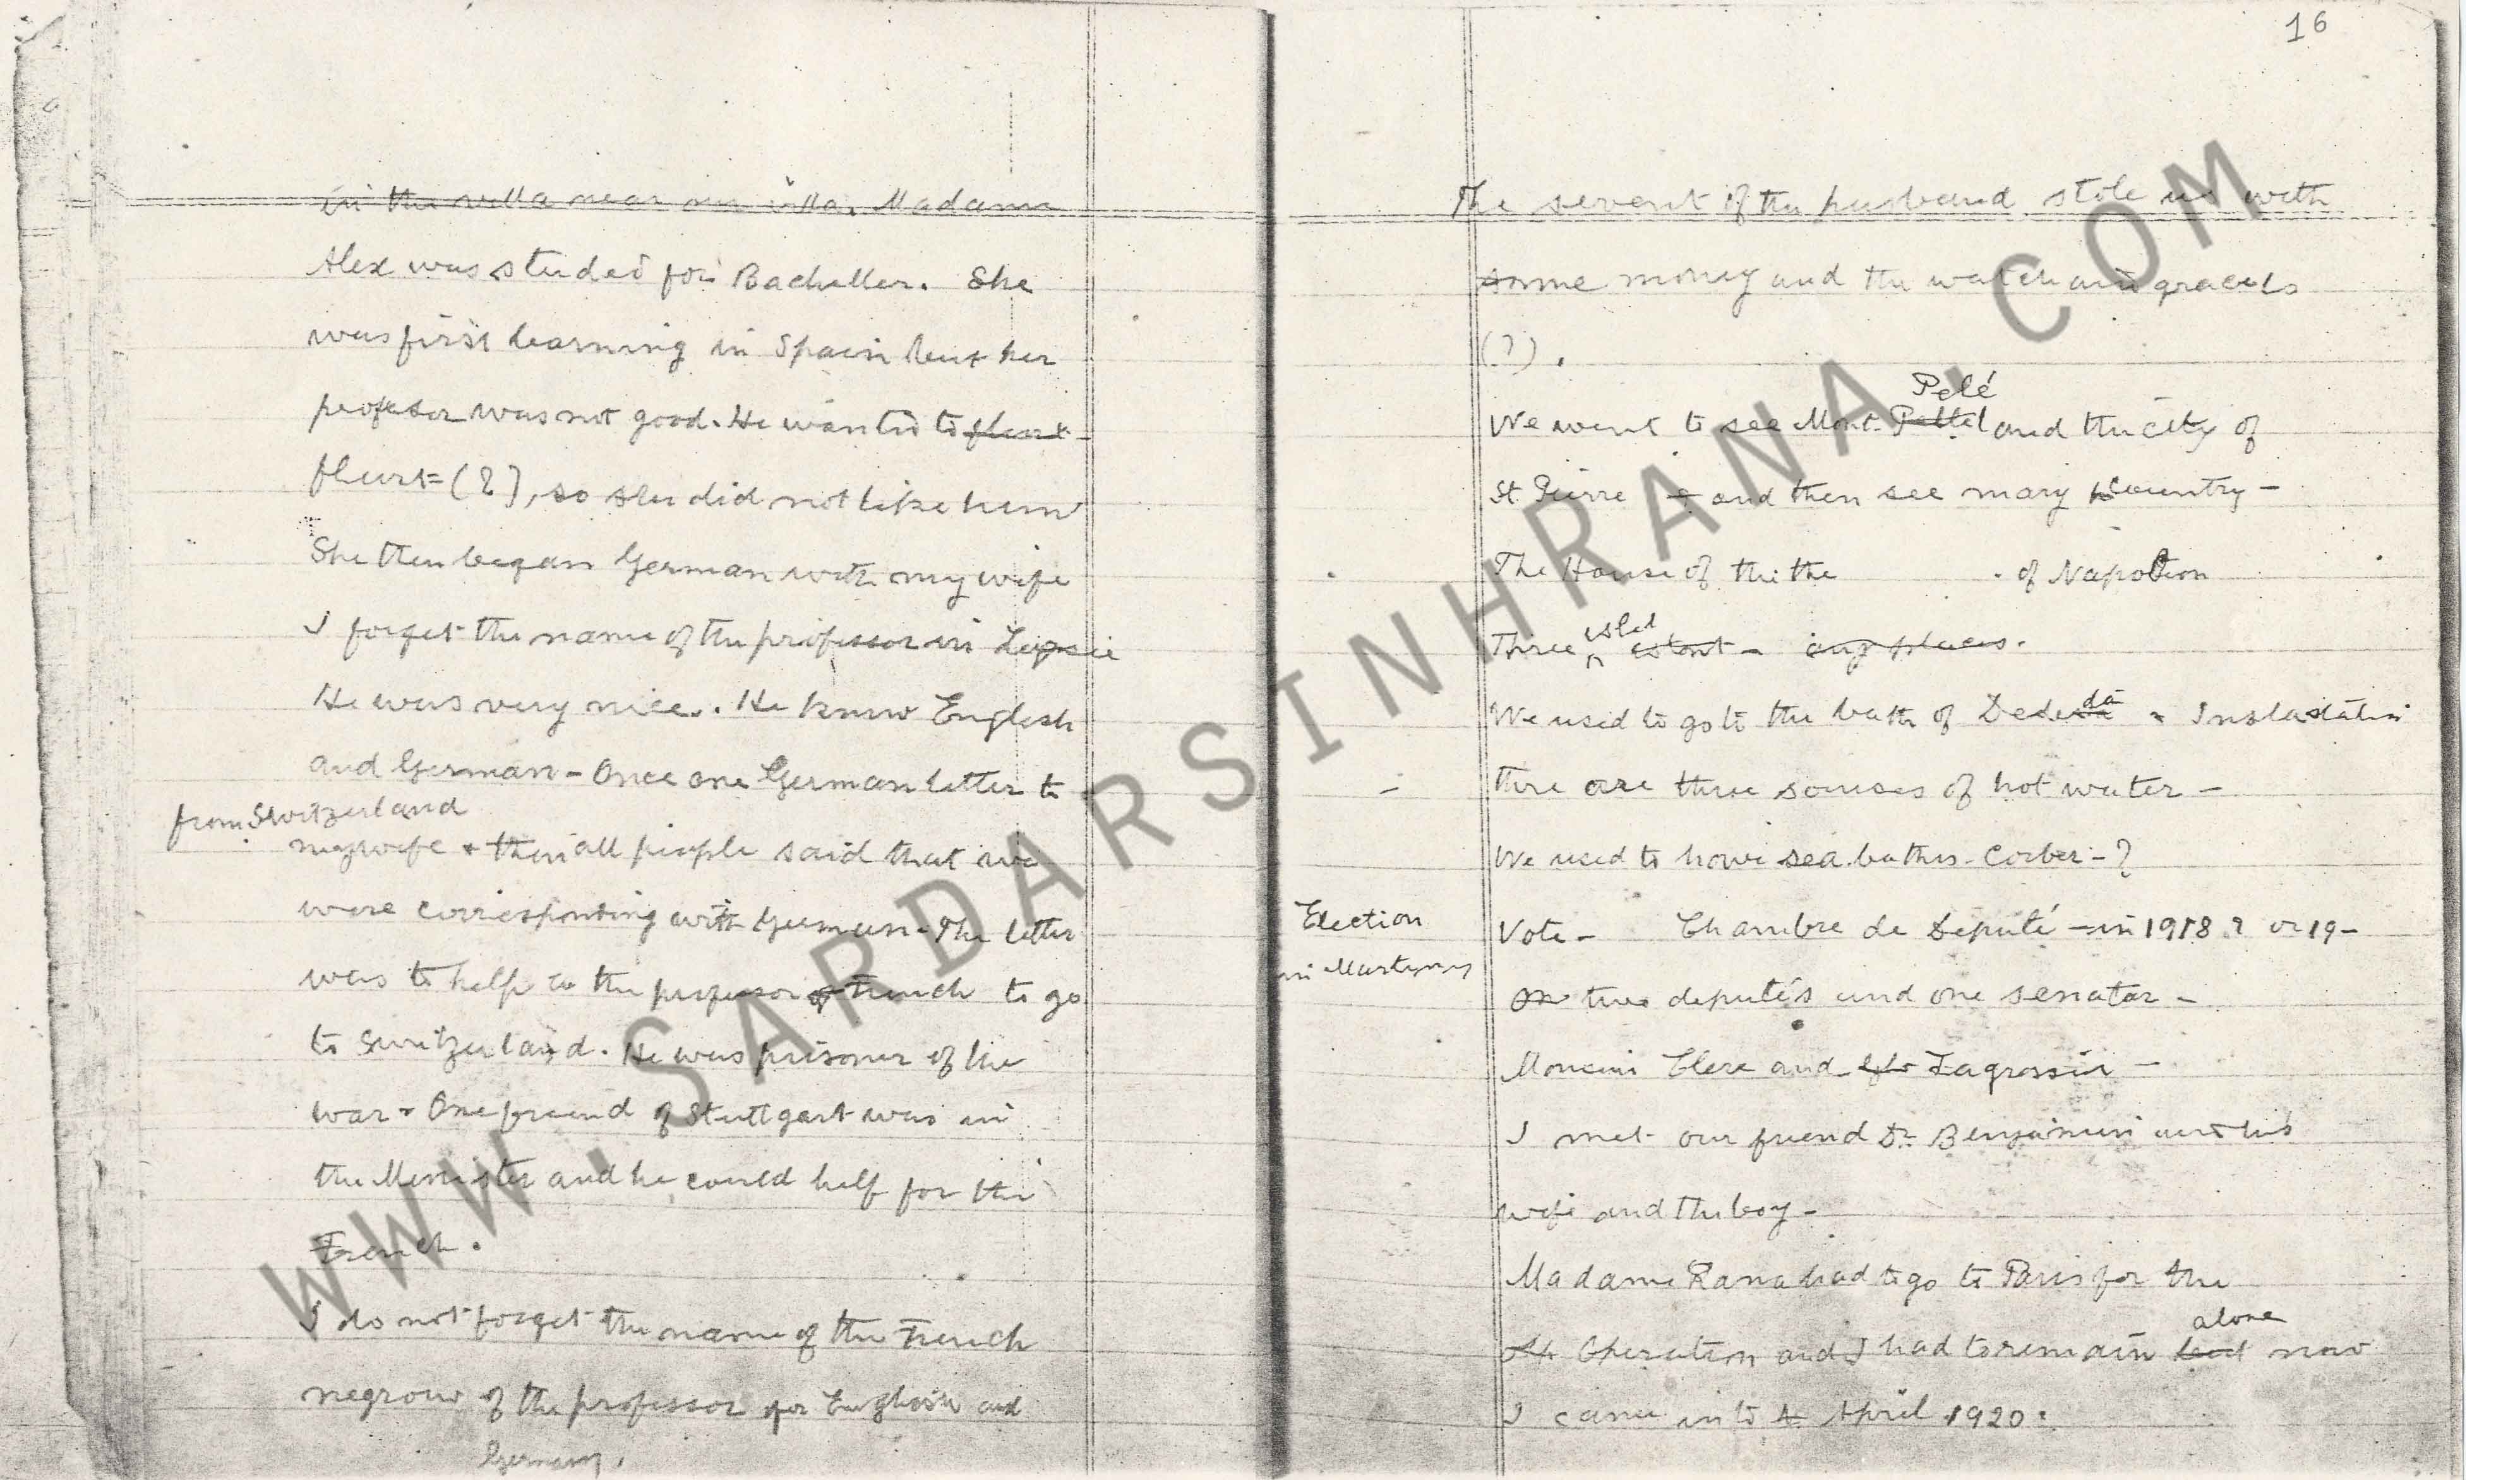 in the villa near our villa. Madame
Alex was studed for Bacheller. She
was first learning in Spain but her
professor was not good. He wanted to
flurt=(?), so she did not like him
She then began German with my wife
I forget the name of the professor in
He was very nice. He know English
and German - Once one German letter to
from Switzerland
my wife & then all people said that we
were corresponting with German. The letter
was to help to the professor of French to go
to Switzerland. He was prisoner of the
war. One friend of Stuttgart was in
the Minister and he could help for the
French.
I do not forget the name of the French
negrow of the professor for English and
Germany.
16
The servent of the husband stole us with
some money and the watch and
(?).
Pelé
We went to see Mont and the city of
St. Pierre and then see many country -
The House of the the . of Napoleon
Three
We used to go to the bath of
there are three sourses of hot water -
We used to have sea bathes - Corber - ?
Election
in
Vote - Chambre de Deputé - in 1918 ? or 19 -
two deputés and one senator -
and Lagrossier -
I met our friend Dr. Benjamin and his
wife and the boy -
Madame Rana had to go to Paris for the
alone
Operation and I had to remain now
I came into April 1920.
WWW.SARDARSINHRANA.COM